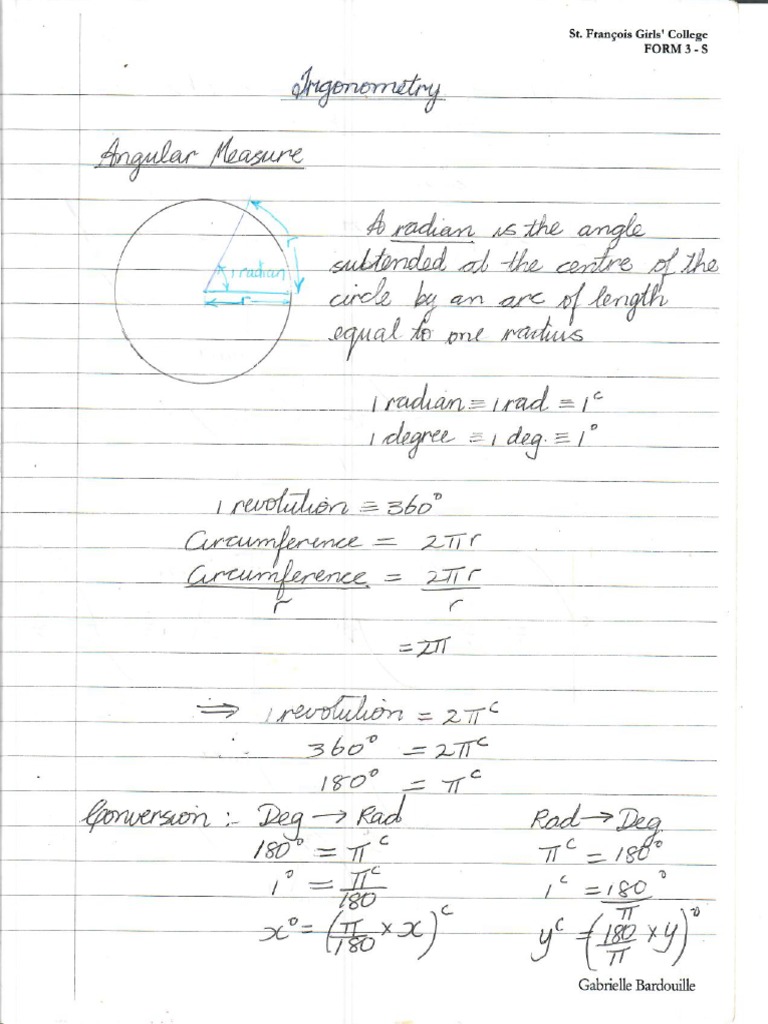 St. François Girls' College
FORM 3 - S
Trigonometry
Angular Measure
A radian is the angle
subtended at the centre of the
circle by an arc of length
equal to one radius
r
1 radian
r
1 radian ≡ 1 rad ≡ 1ᶜ
1 degree ≡ 1 deg. ≡ 1°
1 revolution ≡ 360°
Circumference = 2πr
Circumference = 2πr
r r
= 2π
⇒ 1 revolution = 2πᶜ
∴ 360° = 2πᶜ
180° = πᶜ
Conversion :- Deg → Rad Rad → Deg
180° = πᶜ πᶜ = 180°
1° = πᶜ/180 1ᶜ = 180°/π
x° = (π/180 × x)ᶜ yᶜ = (180/π × y)°
Gabrielle Bardouille